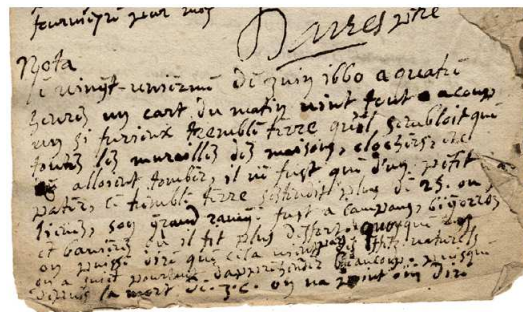 Barres ptre
Nota
Le vingt-uniesme de juin 1660 a quatre
heures un cart du matin vint tout a coup
un si furieux tremble terre quil sembloit que
toutes les murailles des maisons, clochers, etc
alloient tomber, il ne fust que d'un petit
pater, ce tremble terre sestendist plus de 25. ou
lieues, son grand ravage fust a Campan, bigorre
et banieres ou il fit plus d'effort, quoyque
on puisse dire que cela vint naturels
on a sujet pourtant d'apprehender beaucoup, puisque
depuis la mort de J.C. on na point oui dire